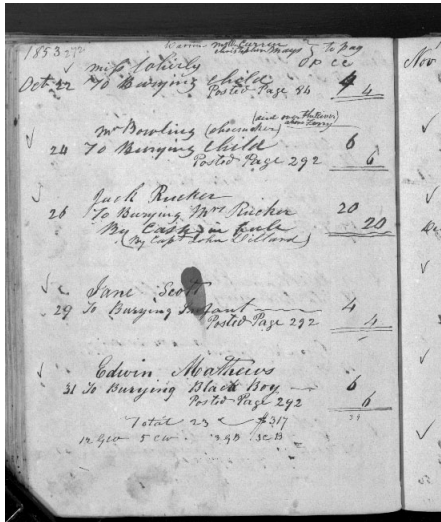 1853
to pay
Miss
Oct 22 To Burying Child 4
Posted Page 84 4
Mr Bowling (shoemaker)
24 To Burying Child 6
Posted Page 292 6
Jack Rucker
26 To Burying Mrs Rucker 20
By Cash in full 20
(By Capt John Dillard)
Jane Scott
29 To Burying Infant 4
Posted Page 292 4
Edwin Mathews
31 To Burying Black Boy 6
Posted Page 292 6
Total 23 $317
Nov